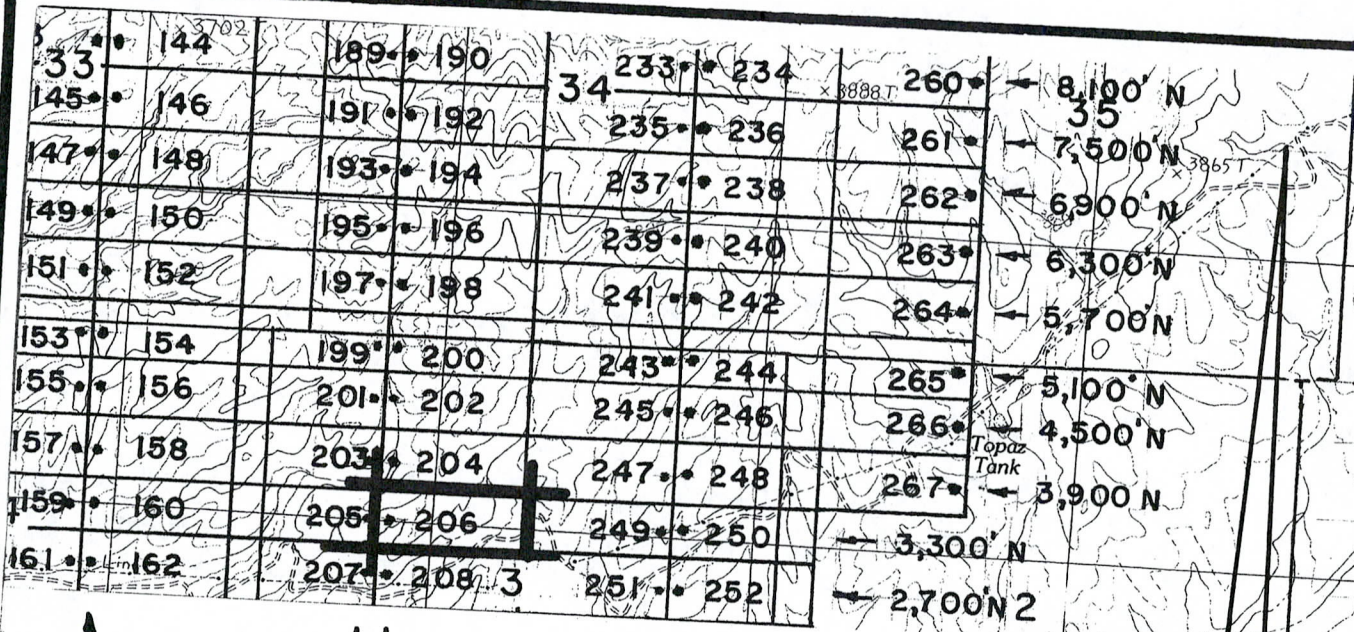 3702
144 189 190 233 234 260 8,100' N
33 34 3888T 35
145 146 191 192 235 236 261 7,500'N
3865T
147 148 193 194 237 238 262 6,900'N
149 150 195 196 239 240 263 6,300'N
151 152 197 198 241 242 264 5,700'N
153 154 199 200 243 244 265 5,100'N
155 156 201 202 245 246 266 4,500'N
Topaz
Tank
157 158 203 204 247 248 267 3,900 N
159 160 205 206 249 250 3,300'N
161 162 207 208 3 251 252 2,700'N 2